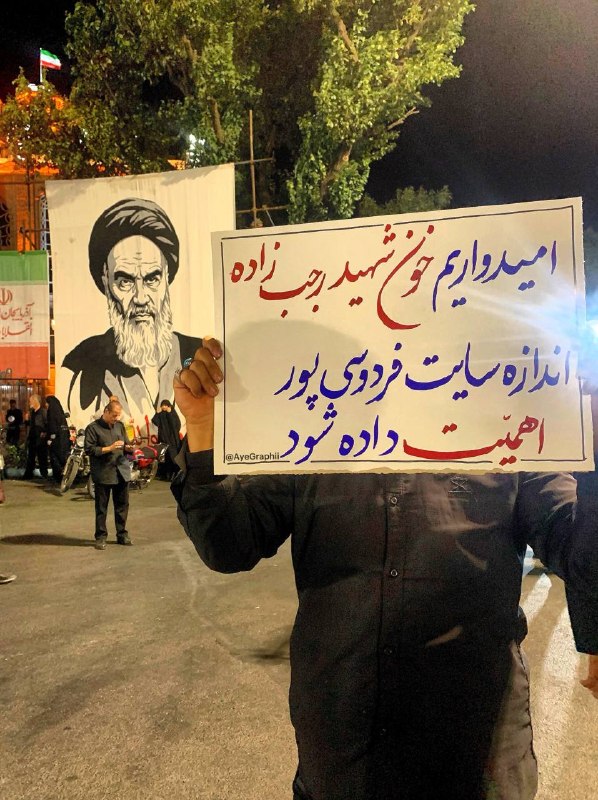 امیدواریم خون شهید رجب زاده
اندازه سایت فردوسی پور
اهمیّت داده شود
@AyeGraphii